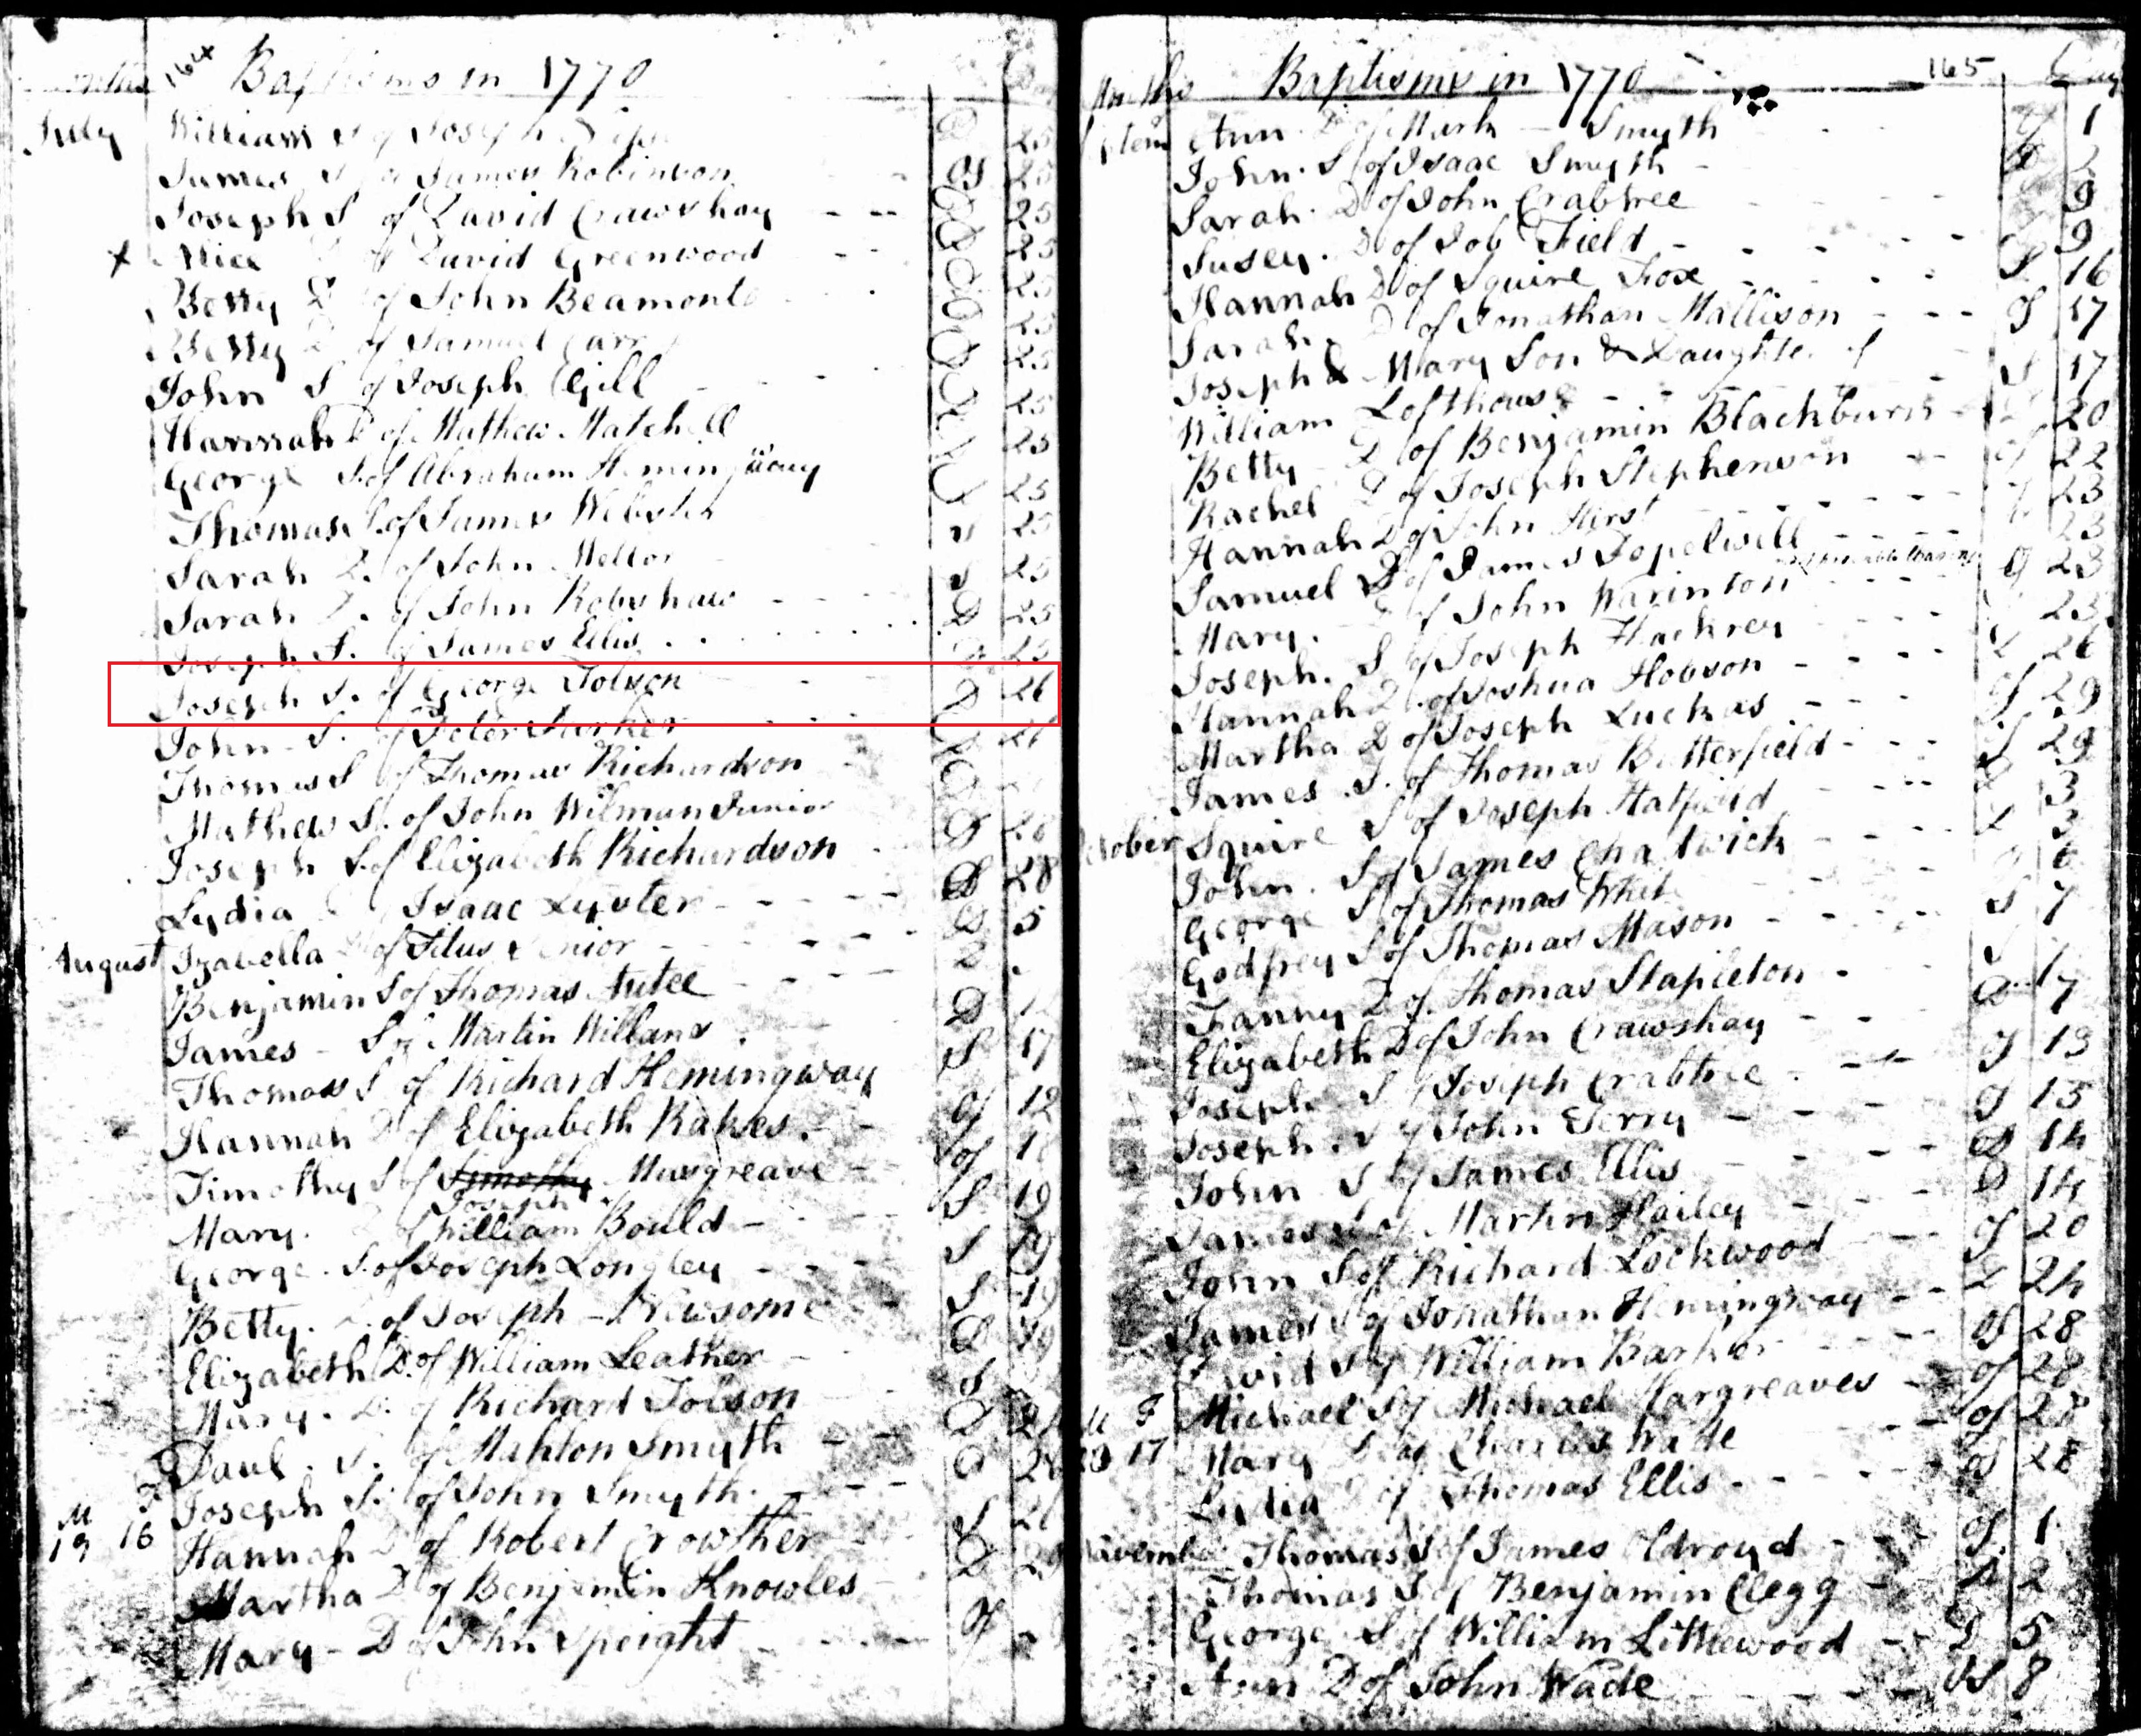 164 Baptisms in 1770
July William S of Joseph
James S of James Robinson Of 25
Joseph S of David Crawshay D 25
x Alice D of David Greenwood D 25
Betty D of John Beamont D 25
Betty D of Samuel Carr D 25
John S of Joseph Gill D 25
Hannah D of Mathew Matchell 25
George S. of Abraham Hemingway 25
Thomas S. of James Webster 25
Sarah D. of John Mellor 25
Sarah D. of John Robishaw 25
Joseph S. of James Ellis 25
Joseph S. of George Tolson D 26
John S. of Peter Parker 26
Thomas S of Thomas Richardson
Mathew S. of John Wilman Junior 28
Joseph S. of Elizabeth Richardson 28
Lydia Isaac Lyster D 5
August Izabella of Titus Senior D
Benjamin S of Thomas Autee D
James S of Martin Willans S 17
Thomas S of Richard Hemingway Of 12
Hannah D of Elizabeth Rakes Of 18
Timothy S of Timothy Musgreave S 19
Joseph
Mary. D of William Bould S 19
George. S. of Joseph Longley S 19
Betty. D. of Joseph Newsome
Elizabeth D. of William Leather
Mary. D. of Richard Tolson
Paul. S. of Mahlon Smyth
Joseph S. of John Smyth.
M F
19 16 Hannah D of Robert Crowther
Martha D of Benjamin Knowles
Mary - D of John Speight Of
Months Baptisms in 1770 165 Days
Septem Ann. D of Mark Smyth 1
John. S of Isaac Smyth 2
Sarah. D of John Crabtree 9
Susey. D of Job Field 9
Hannah D of Squire Fox S. 16
Sarah. D of Jonathan Mallison Of 17
Joseph & Mary Son & Daughter of
William Lofthouse S 17
Betty D of Benjamin Blackburn 20
Rachel D of Joseph Stephenson Of 22
Hannah D of John Hirst 23
Samuel S of James Popelwell 23
Mary. D of John Warinton Of 23
Joseph. S of Joseph Hackrey 23
Hannah D. of Joshua Hobson 26
Martha D of Joseph Luckas Of 29
James. S. of Thomas Butterfield S 29
October Squire S of Joseph Hatfield 3
John. S of James Chadwick 3
George S of Thomas White 6
Godfrey S of Thomas Mason S 7
Fanny D. of Thomas Stapleton
Elizabeth D of John Crawshay D 7
Joseph S of Joseph Crabtree Of 13
Joseph. S of John Terry Of 13
John S of James Ellis D 14
James S of Martin Hailey D 14
John S of Richard Lockwood Of 20
James S of Jonathan Hemingway D 24
David S of William Barker Of 28
Michael S of Michael Hargreaves Of 28
Mary D of Charles Wade Of 28
M F
23 17 Lydia D of Thomas Ellis Of 28
November Thomas S of James Oldroyd Of. 1
Thomas S of Benjamin Clegg D 2
George S of William Littlewood D 5
Ann D of John Wade Of 8